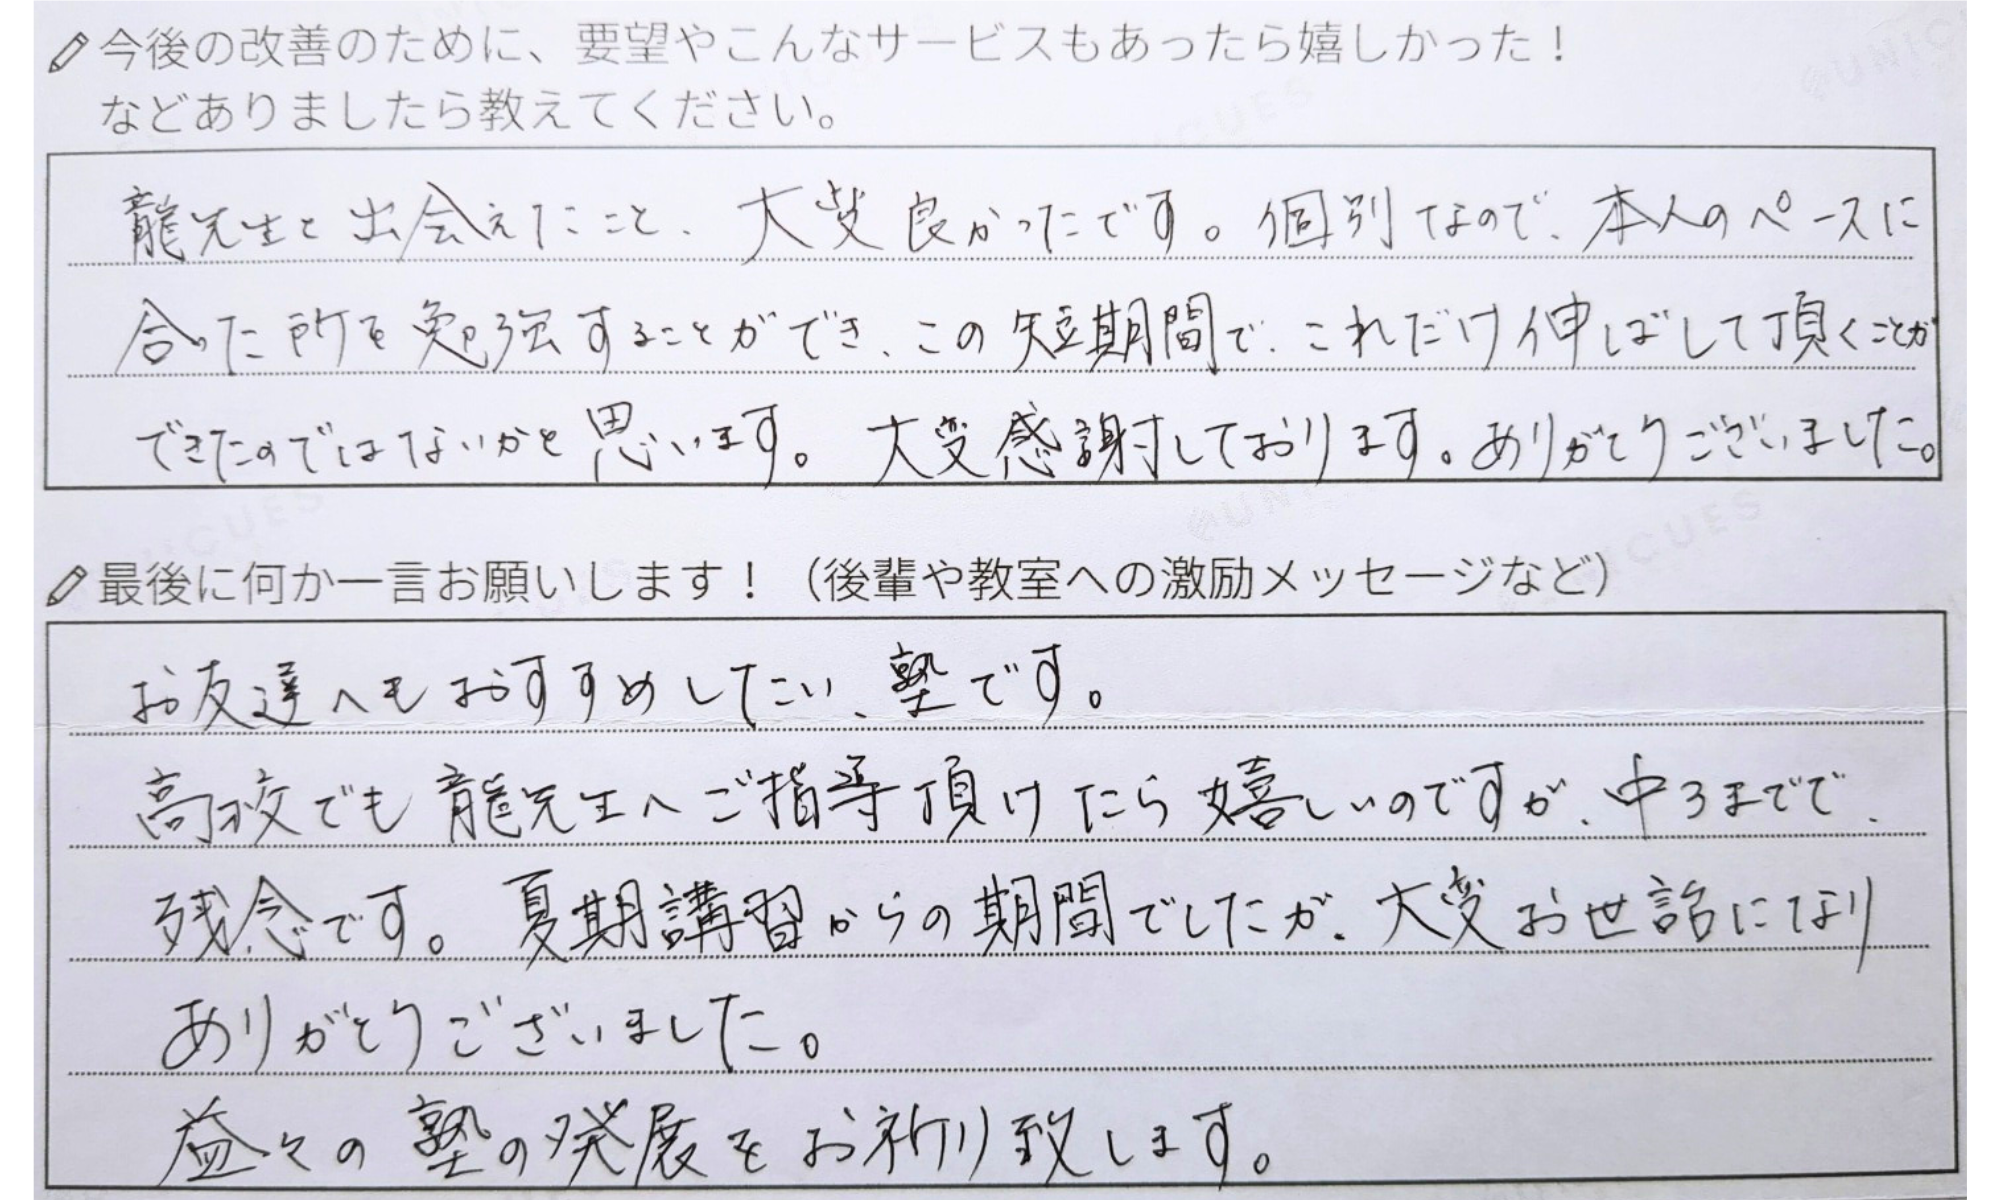 今後の改善のために、要望やこんなサービスもあったら嬉しかった！
などありましたら教えてください。
龍先生と出会えたこと、大変良かったです。個別なので、本人のペースに
合った所を勉強することができ、この短期間で、これだけ伸ばして頂くことが
できたのではないかと思います。大変感謝しております。ありがとうございました。
最後に何か一言お願いします！（後輩や教室への激励メッセージなど）
お友達へもおすすめしたい、塾です。
高校でも龍先生へご指導頂けたら嬉しいのですが、中3までで、
残念です。夏期講習からの期間でしたが、大変お世話になり
ありがとうございました。
益々の塾の発展をお祈り致します。